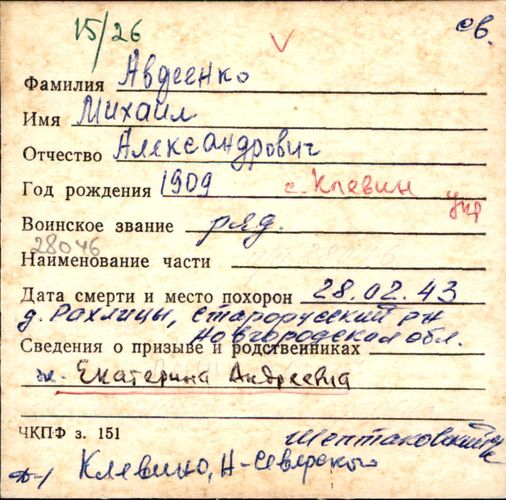 15/26 св.
Фамилия Авдеенко
Имя Михаил
Отчество Александрович
Год рождения 1909 с. Клевин
Укр
Воинское звание ряд.
28046
Наименование части
Дата смерти и место похорон 28.02.43
д. Рахлицы, Старорусский рн
Новгородская обл.
Сведения о призыве и родственниках
ж. Екатерина Андреевна
ЧКПФ з. 151
Шептаковский
Клевино, Н-Северского